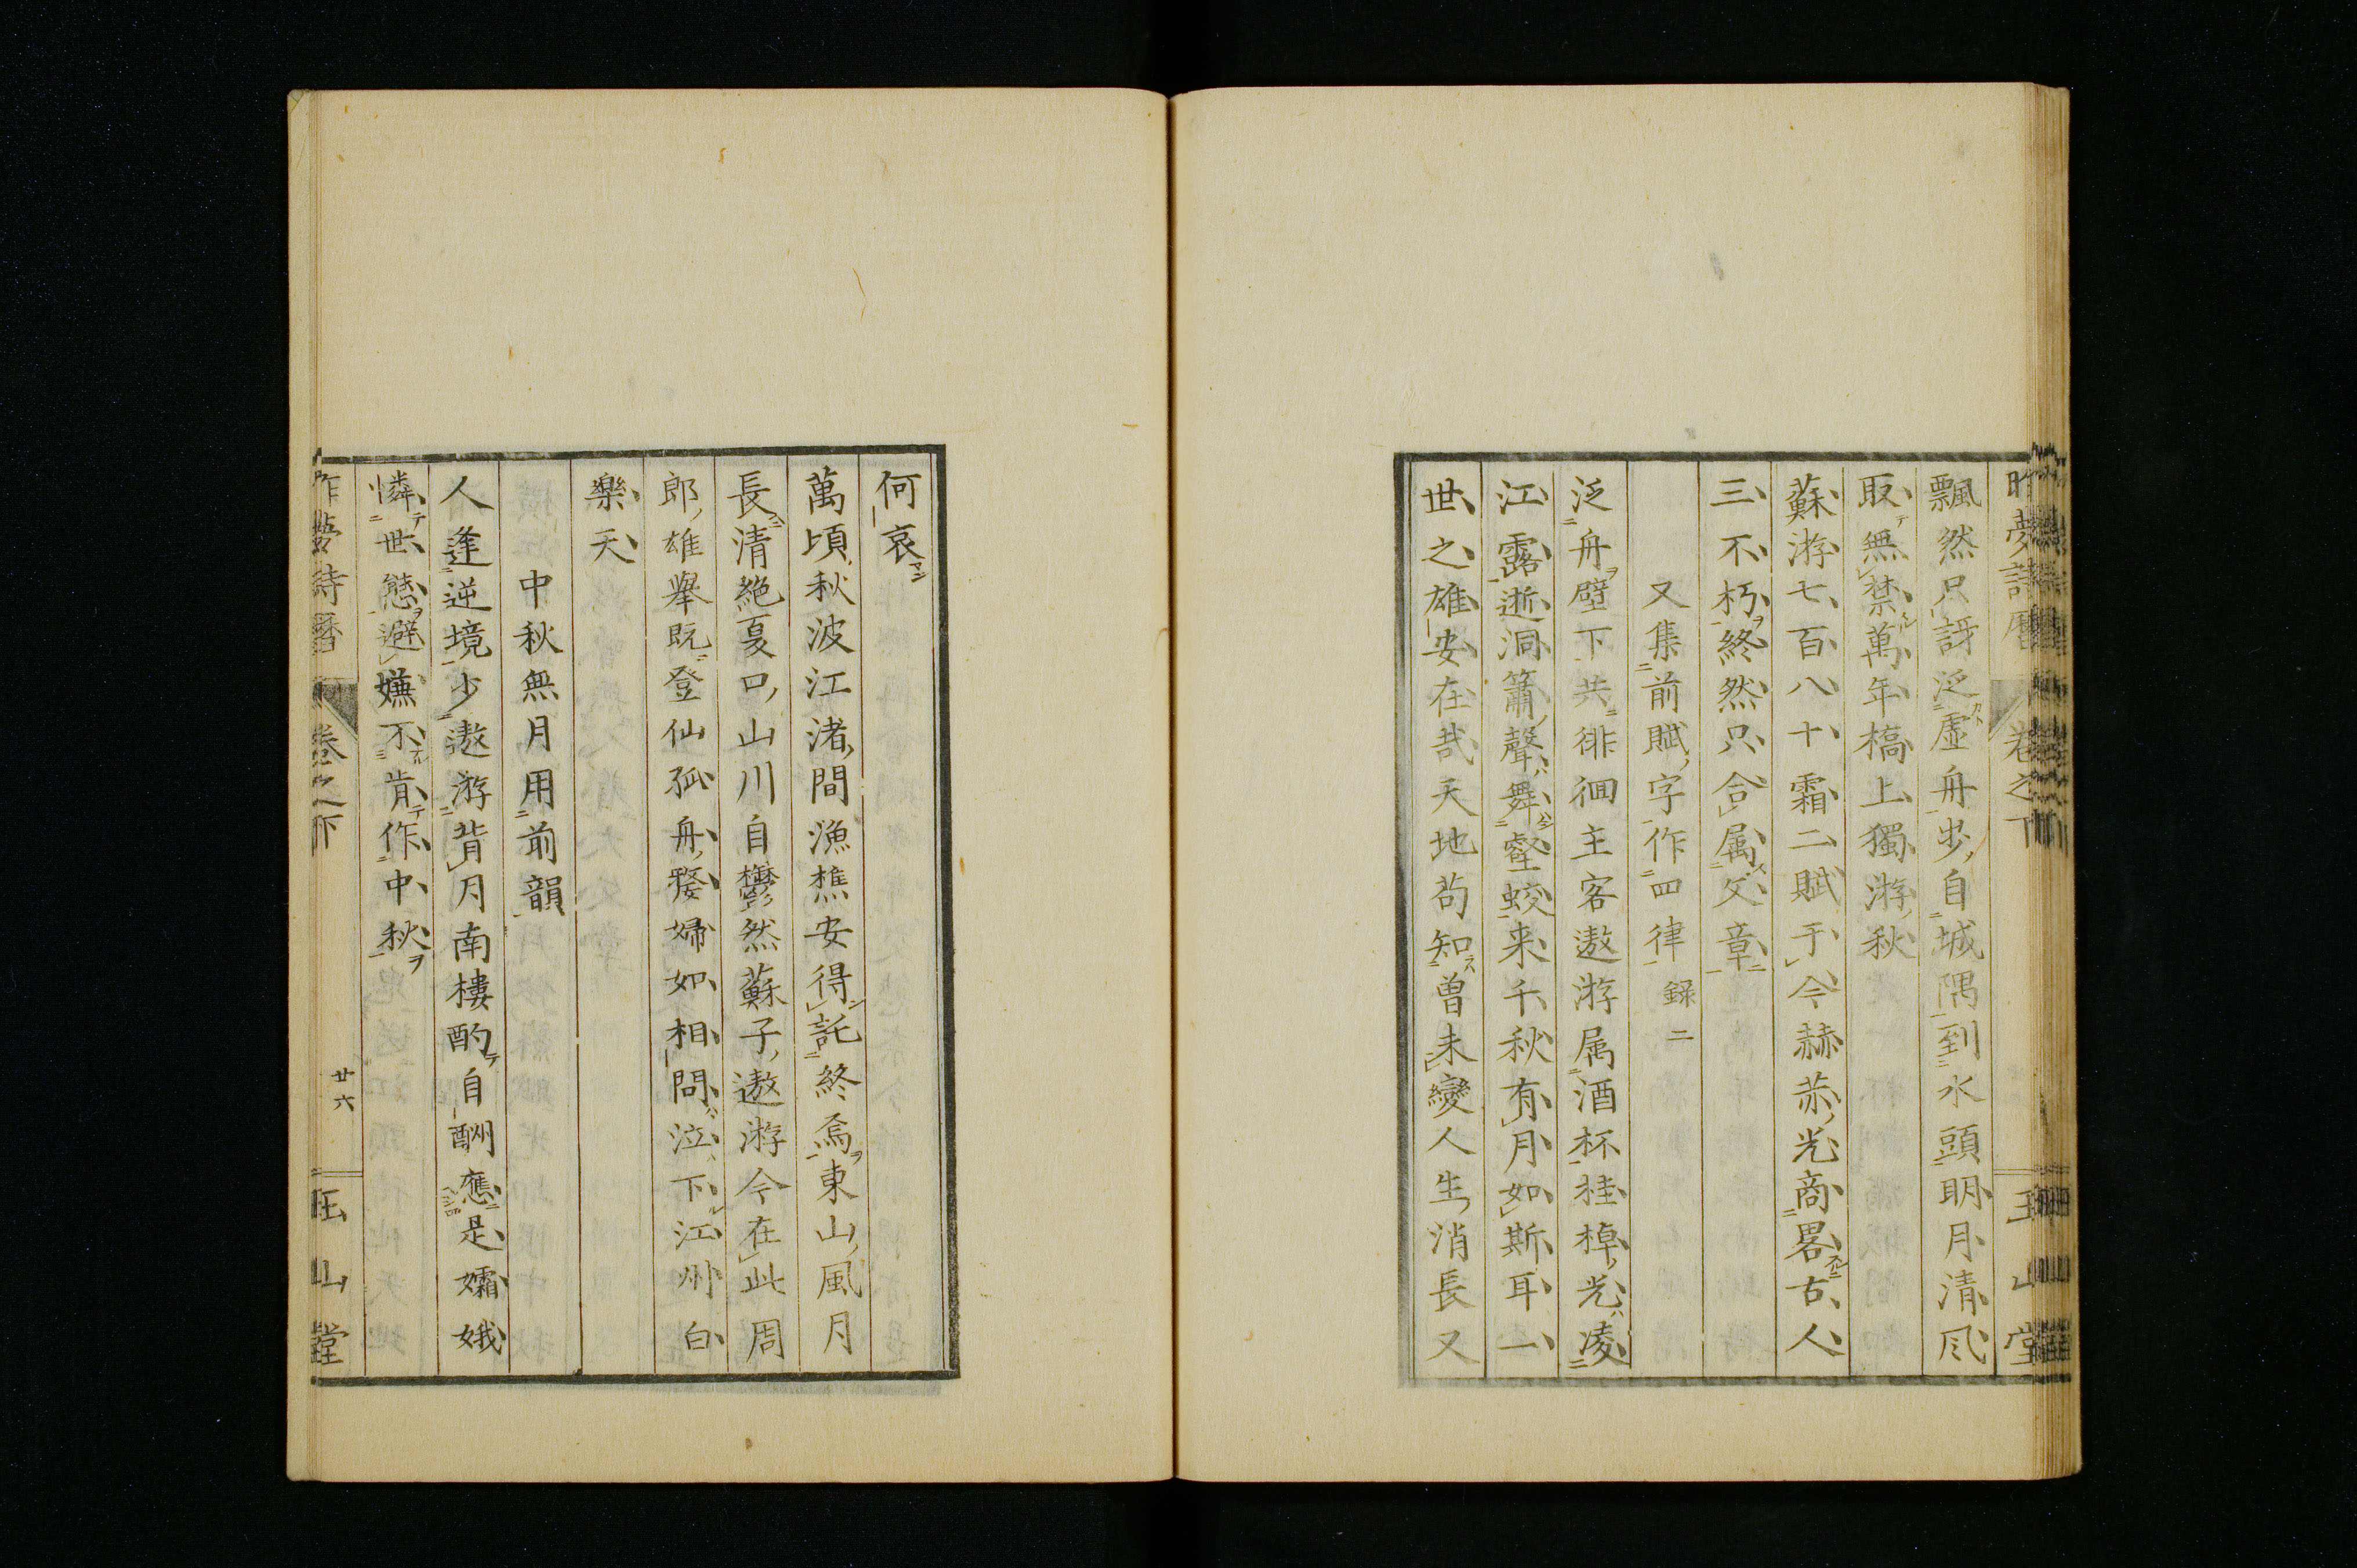 昨夢詩曆 卷之下 玉山堂
飄然只訝泛虛舟步自城隅到水頭明月清風
取無禁萬年橋上獨游秋
蘇游七百八十霜二賦于今赫赤光商畧古人
三不朽終然只合属文章
又集前賦字作四律 錄二
泛舟壁下共徘徊主客遨游属酒杯桂棹光凌
江露逝洞簫聲舞壑蛟来千秋有月如斯耳一
世之雄安在哉天地苟知曾未變人生消長又
何哀
萬頃秋波江渚間漁樵安得託終焉東山風月
長清絶夏口山川自欝然蘇子遨游今在此周
郎雄舉既登仙孤舟嫠婦如相問泣下江州白
樂天
中秋無月用前韻
人逢逆境少遨游背月南樓酌自酬應是孀娥
憐世態避嫌不肯作中秋
昨夢詩曆 卷之下 廿六 玉山堂